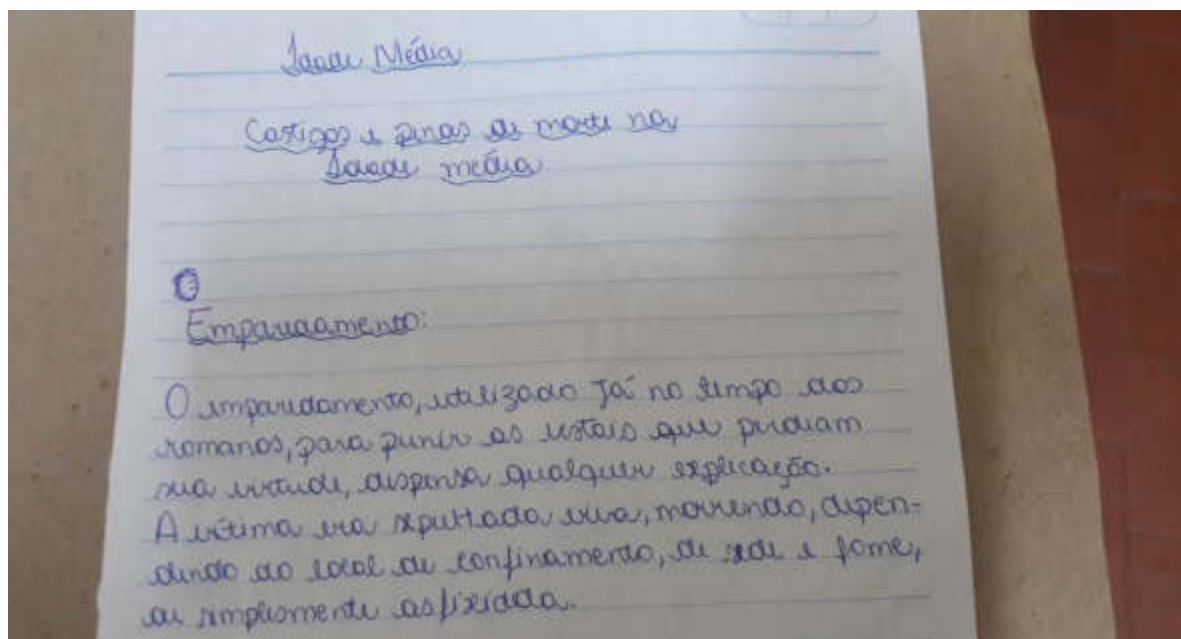 Idade Média
Castigos e penas de morte na
Idade média
Emparedamento:
O emparedamento, utilizado já no tempo dos
romanos, para punir as vestais que perdiam
sua virtude, dispensa qualquer explicação.
A vítima era sepultada viva, morrendo, depen-
dendo do local de confinamento, de sede e fome,
ou simplesmente asfixiada.